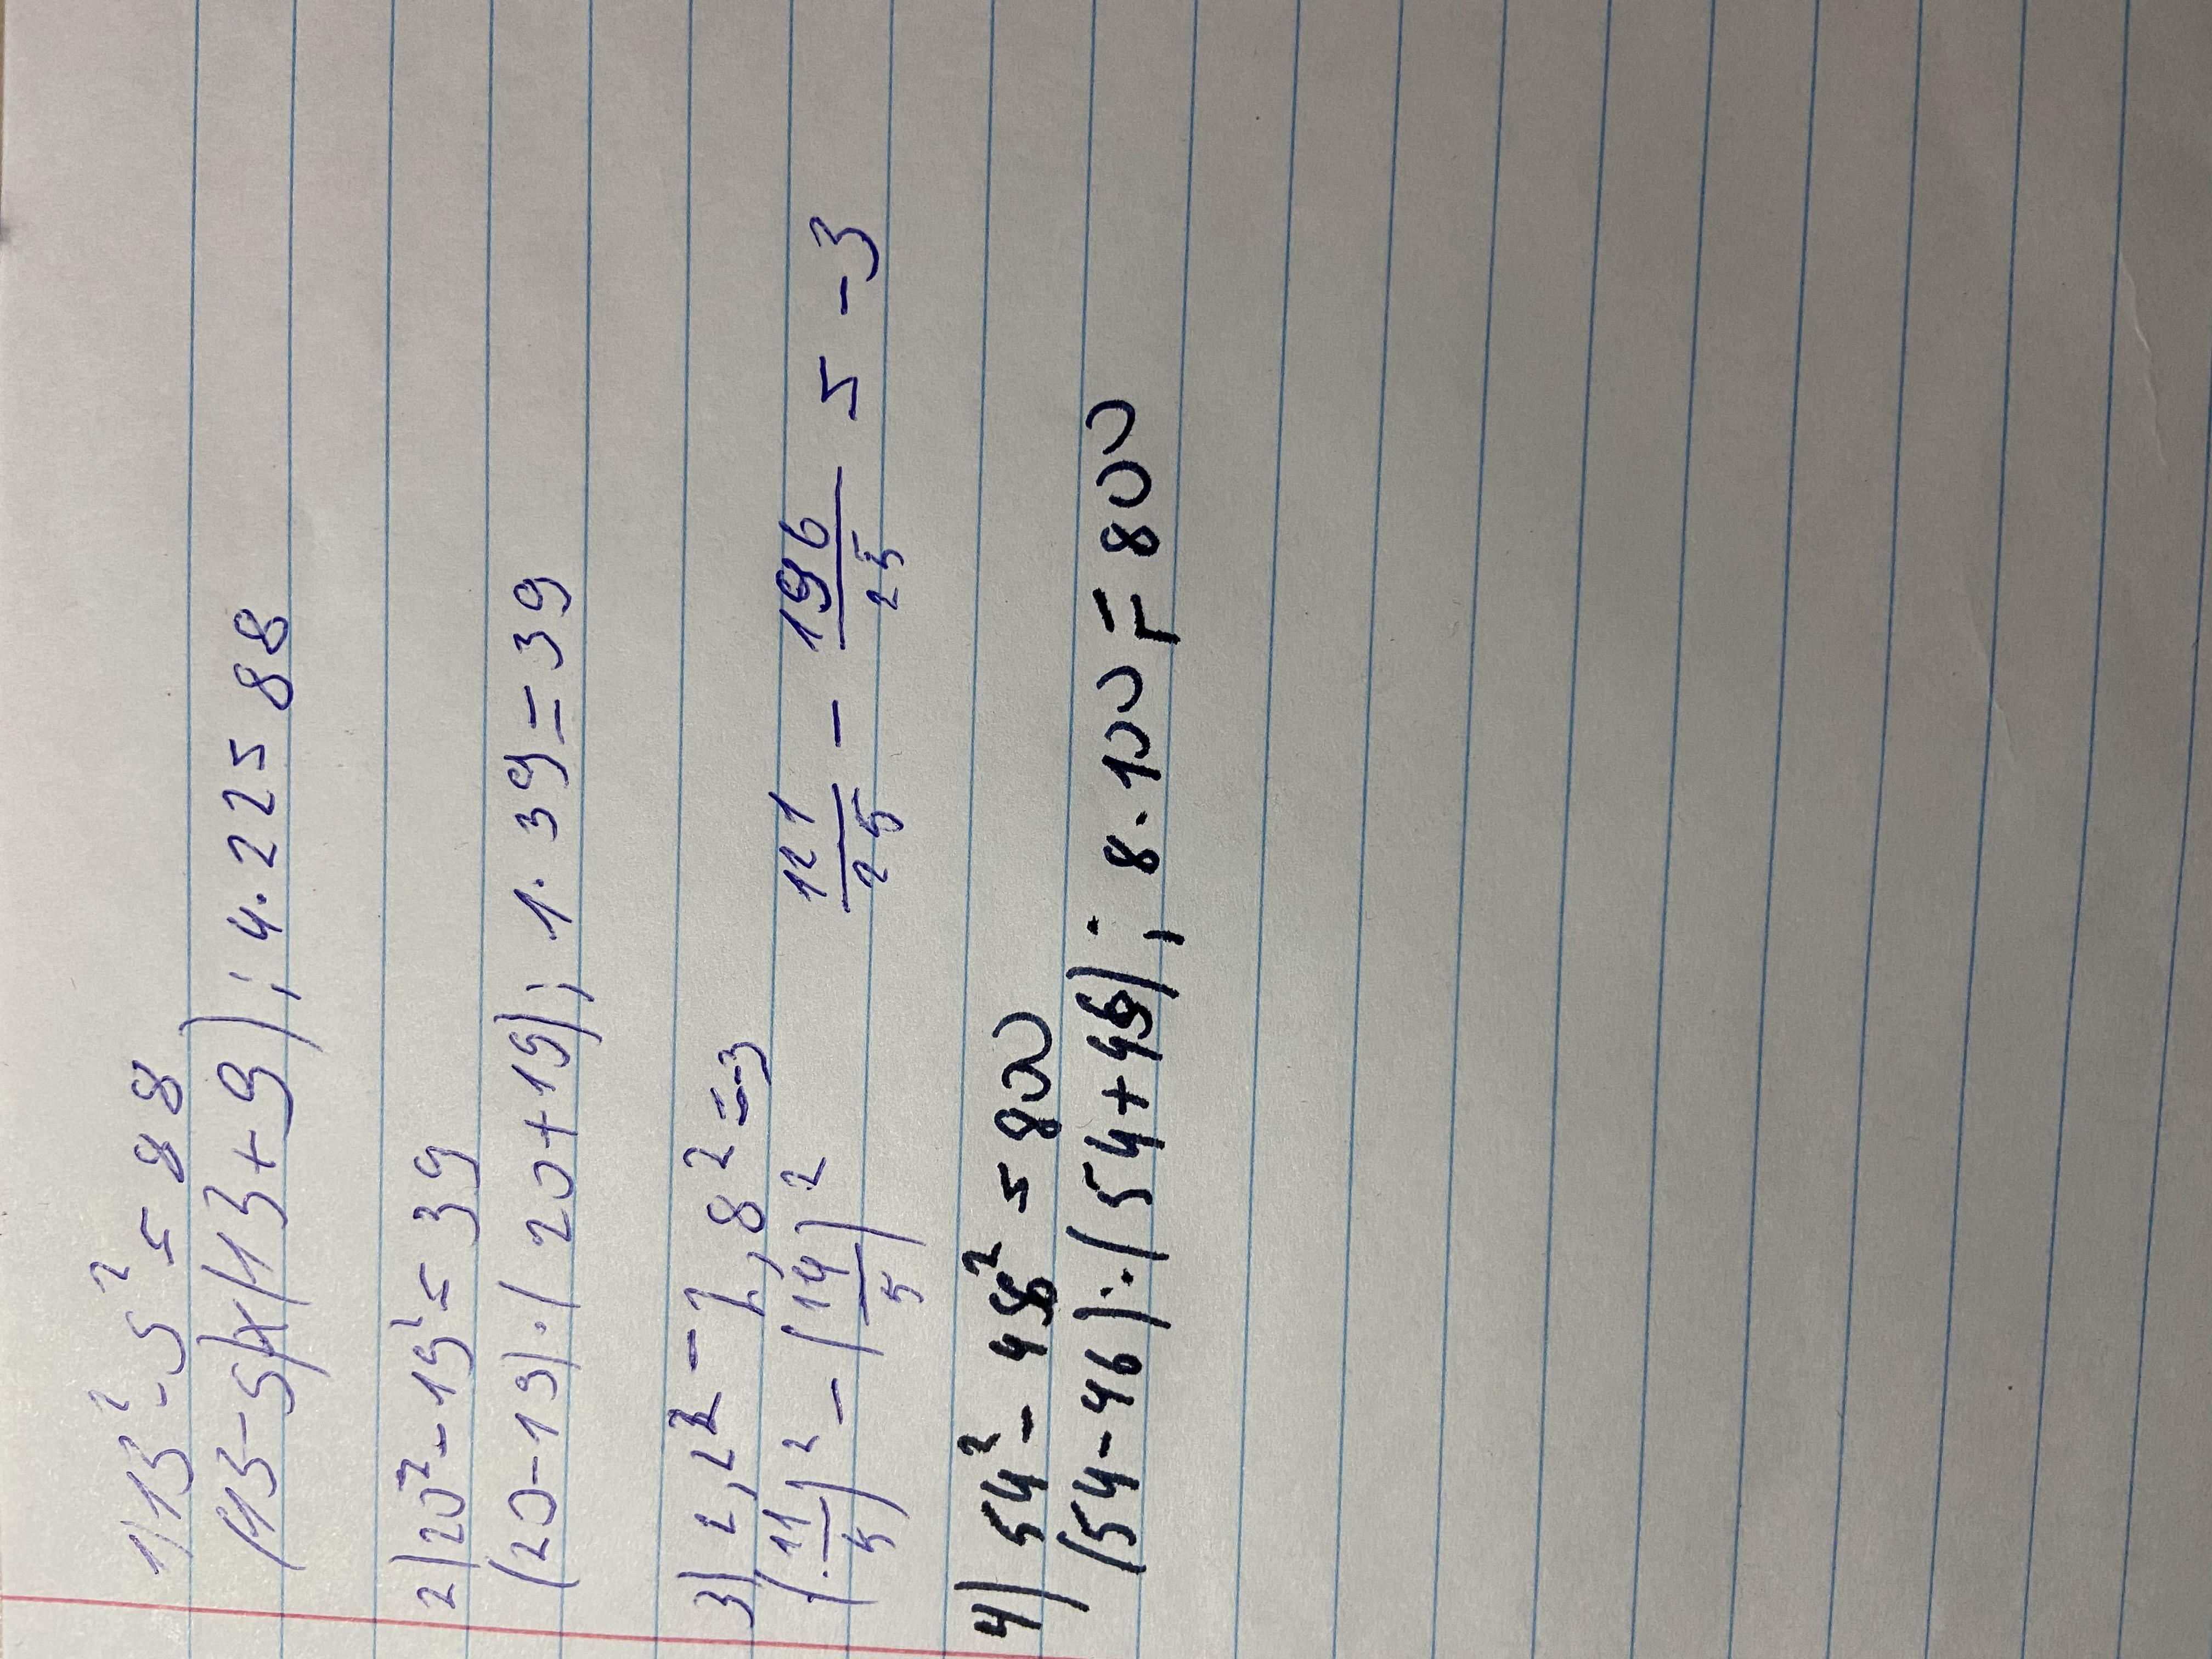 1) 13² - 9² = 88
(13-9)×(13+9); 4·22=88
2) 20² - 19² = 39
(20-19)·(20+19); 1·39=39
3) 2,2² - 2,8² = -3
(11/5)² - (14/5)² 121/25 - 196/25 = -3
4) 54² - 46² = 800
(54-46)·(54+46); 8·100=800